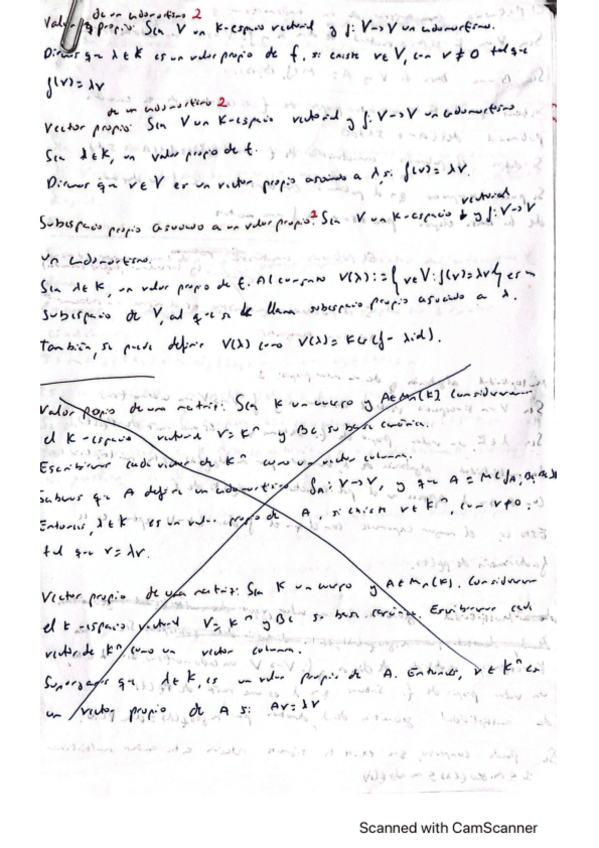 de un endomorfismo 2
Valor propio: Sea V un K-espacio vectorial y f: V→V un endomorfismo.
Diremos que λ∈K es un valor propio de f, si existe v∈V, con v≠0 tal que
f(v)=λv
de un endomorfismo 2
Vector propio: Sea V un K-espacio vectorial y f: V→V un endomorfismo
Sea λ∈K, un valor propio de f.
Diremos que v∈V es un vector propio asociado a λ, si f(v)=λv.
vectorial
Subespacio propio asociado a un valor propio: 2 Sea V un K-espacio y f: V→V
un endomorfismo.
Sea λ∈K, un valor propio de f. Al conjunto V(λ):={v∈V: f(v)=λv} es un
subespacio de V, al que se le llama subespacio propio asociado a λ.
También, se puede definir V(λ) como V(λ)=Ker(f-λid).
Valor propio de una matriz: Sea K un cuerpo y A∈Mn(K). Consideremos
el K-espacio vectorial V=K^n y Bc su base canónica.
Escribiremos cada vector de K^n como un vector columna.
Sabemos que A define un endomorfismo fA: V→V, y que A=M(fA;
Entonces, λ∈K es un valor propio de A, si existe v∈K^n, con v≠0.
tal que v=λv.
Vector propio de una matriz: Sea K un cuerpo y A∈Mn(K). Consideremos
el K-espacio vectorial V=K^n y Bc su base canónica. Escribiremos cada
vector de K^n como un vector columna.
Supongamos que λ∈K, es un valor propio de A. Entonces, v∈K^n es
un vector propio de A si Av=λv
Scanned with CamScanner